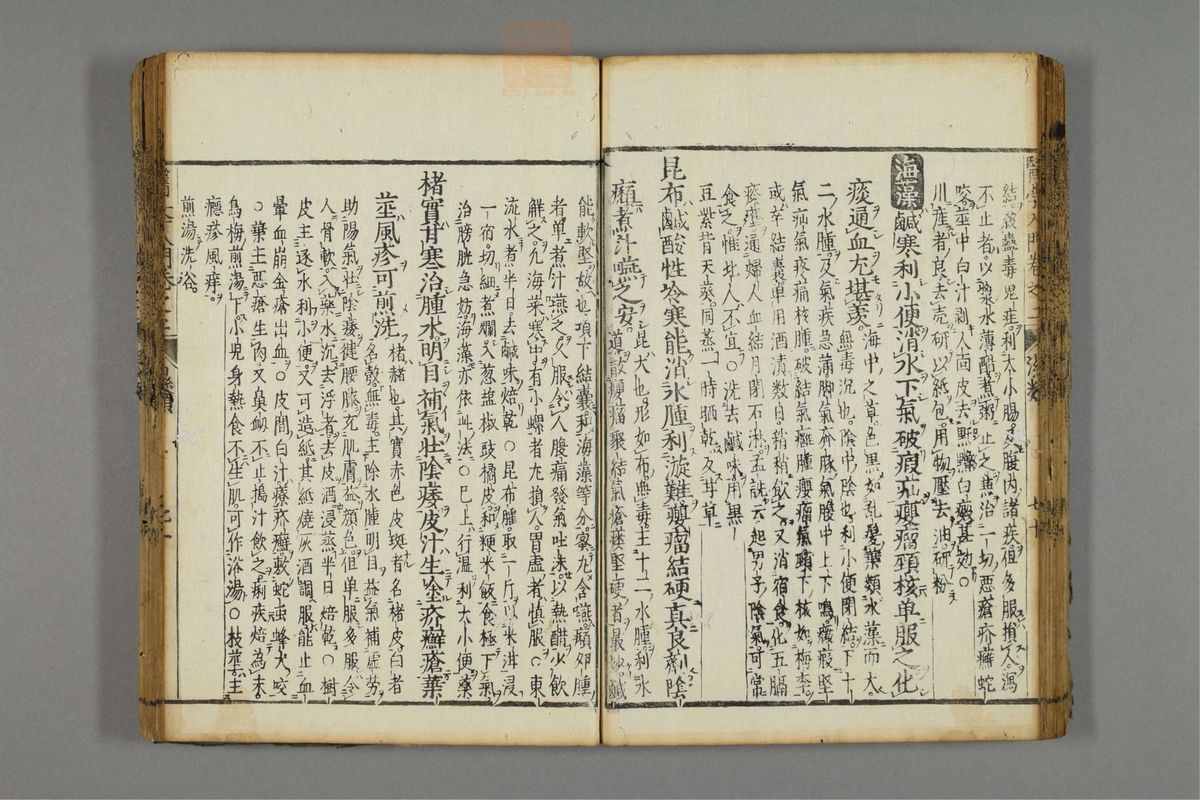 結散蠱毒鬼疰利大小腸
不止者以漿水薄醋煮粥止之
川產者良去壳研以紙包用物壓去油研粉
海藻鹹寒利小便消水下氣破瘕疝癭瘤頸核单服之化
痰通血尤堪羡海中之草色黒如乱髮葉類水藻而大
無毒沉也陰中陰也利小便閉結下十
二水腫及氣疾急滿脚氣奔豚氣腹中上下鳴癥瘕堅
氣疝氣疼痛核腫破結氣癰腫癭瘤氣頸下核如梅李
或卒結囊單用酒漬数日稍稍飲之又消宿食化五膈
痰壅通婦人血結月閉石淋孟詵云起男子陰氣可常
食之惟北人不宜○洗去鹹味用黒
豆紫背天葵同蒸一時晒乾反甘草
昆布鹹酸性冷寒能消水腫利漩難癭瘤結硬真良劑陰
㿗煮汁嚥之安昆大也形如布無毒主十二水腫利水
道散癭瘤聚結氣瘡瘻堅硬者最妙鹹
能軟堅故也項下結囊和海藻等分蜜丸含嚥㿗卵腫
者单煮汁嚥之久服令人腹痛發氣吐沫以熱醋少飲
觧之凡海菜寒中有小螺者尤損人胃虛者慎服○東
流水煮半日去鹹味焙乾○昆布臛取一斤以米泔浸
一宿切細煮爛入葱塩椒豉橘皮和粳米飯食極下氣
治膀胱急妨海藻亦依此法○已上行溫利大小便藥
楮實甘寒治腫水明目補氣壯陰痿皮汁生塗疥癬瘡葉
莖風疹可煎洗楮赭也其實赤色皮斑者名楮皮白者
名糓無毒主陰水腫明目益氣補虛勞
助陽氣壯陰痿健腰膝充肌膚益顔色但单服多服令
人骨軟入藥水沉去浮者去皮酒浸蒸半日焙乾○樹
皮主逐水利小便又可造紙其紙燒灰酒調服能止血
暈血崩金瘡出血○皮間白汁療疥癬敷蛇虫蜂犬咬
○葉主惡瘡生肉又鼻衂不止搗汁飲之痢疾焙為末
烏梅煎湯下小児身熱食不生肌可作浴湯○枝莖主
癮疹風痒
煎湯洗浴